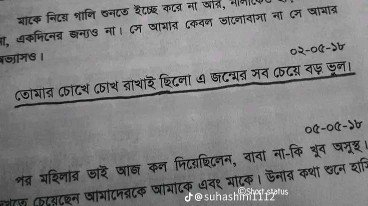 যাকে নিয়ে গালি শুনতে ইচ্ছে করে না আর,
একদিনের জন্যও না। সে আমার কেবল ভালোবাসা না সে আমার
০২-০৫-১৮
তোমার চোখে চোখ রাখাই ছিলো এ জন্মের সব চেয়ে বড় ভুল।
০৫-০৫-১৮
পর মহিলার ভাই আজ কল দিয়েছিলেন, বাবা না-কি খুব অসুস্থ।
চেয়েছেন আমাদেরকে আমাকে এবং মাকে। উনার কথা শুনে হাসি
Short status
@suhashini1112